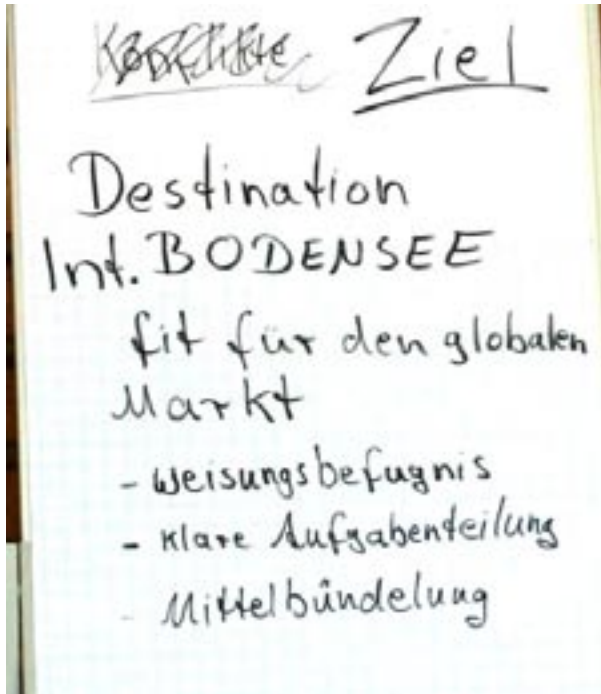 Ziel
Destination
Int. BODENSEE
fit für den globalen
Markt
- Weisungsbefugnis
- Klare Aufgabenteilung
- Mittelbündelung